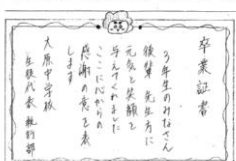 卒業証書
3年生のみなさん
後輩、先生方に
元気と笑顔を
与えてくれました
ここに心からの
感謝の意を表
します
大原中学校
生徒代表